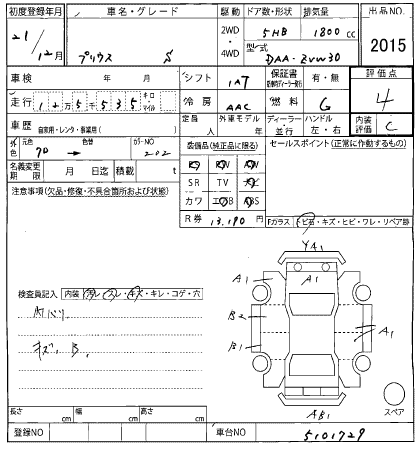 初度登録年月 車名・グレード 駆動 ドア数・形状 排気量 出品NO.
21/12月 プリウス S 2WD・4WD 5HB 1800cc 2015
型式 DAA-ZVW30
車検 年 月 シフト IAT 保証書 有・無 評価点
走行 125535 キロ・マイル 冷房 AAC 燃料 G 4
車歴 自家用・レンタ・事業用( ) 定員 人 外車モデル 年 ディーラー・並行 ハンドル 左・右 内装評価 C
外色 元色 色替 カラーNO 装備品(純正品に限る) セールスポイント(正常に作動するもの)
クロ → 202
名義変更期限 月 日迄 積載 t
SR TV
注意事項(欠品・修復・不具合箇所および状態) カワ エアB ABS
R券 13,190円 Fガラス トビ石・キズ・ヒビ・ワレ・リペア跡
YA1
A1 A1
検査員記入 内装 ヨゴレ・スレ・キズ・キレ・コゲ・穴
B2
A1
B1
キズ、B、
スペア
AB1
長さ cm 幅 cm 高さ cm
登録NO 車台NO 5101729